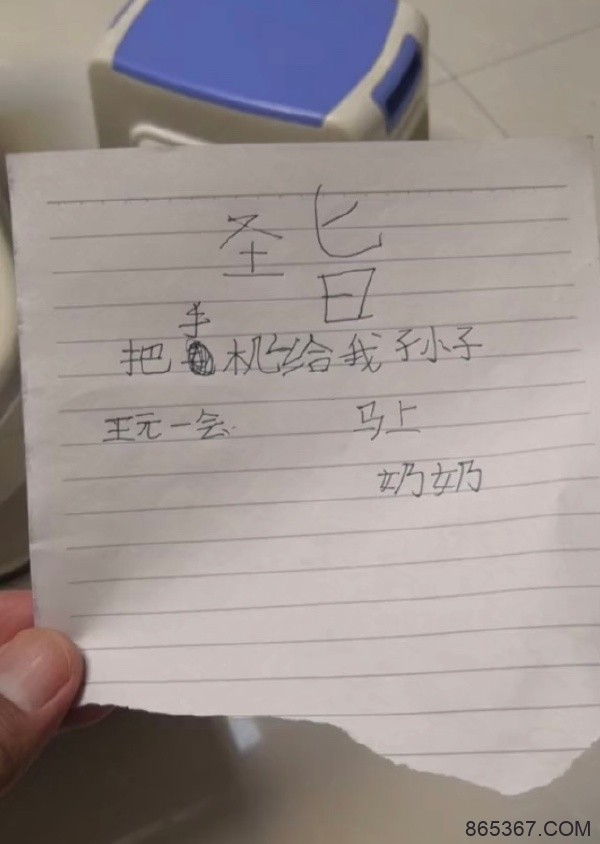 圣旨
把手机给我孙子
玩一会 马上
奶奶
865367.COM